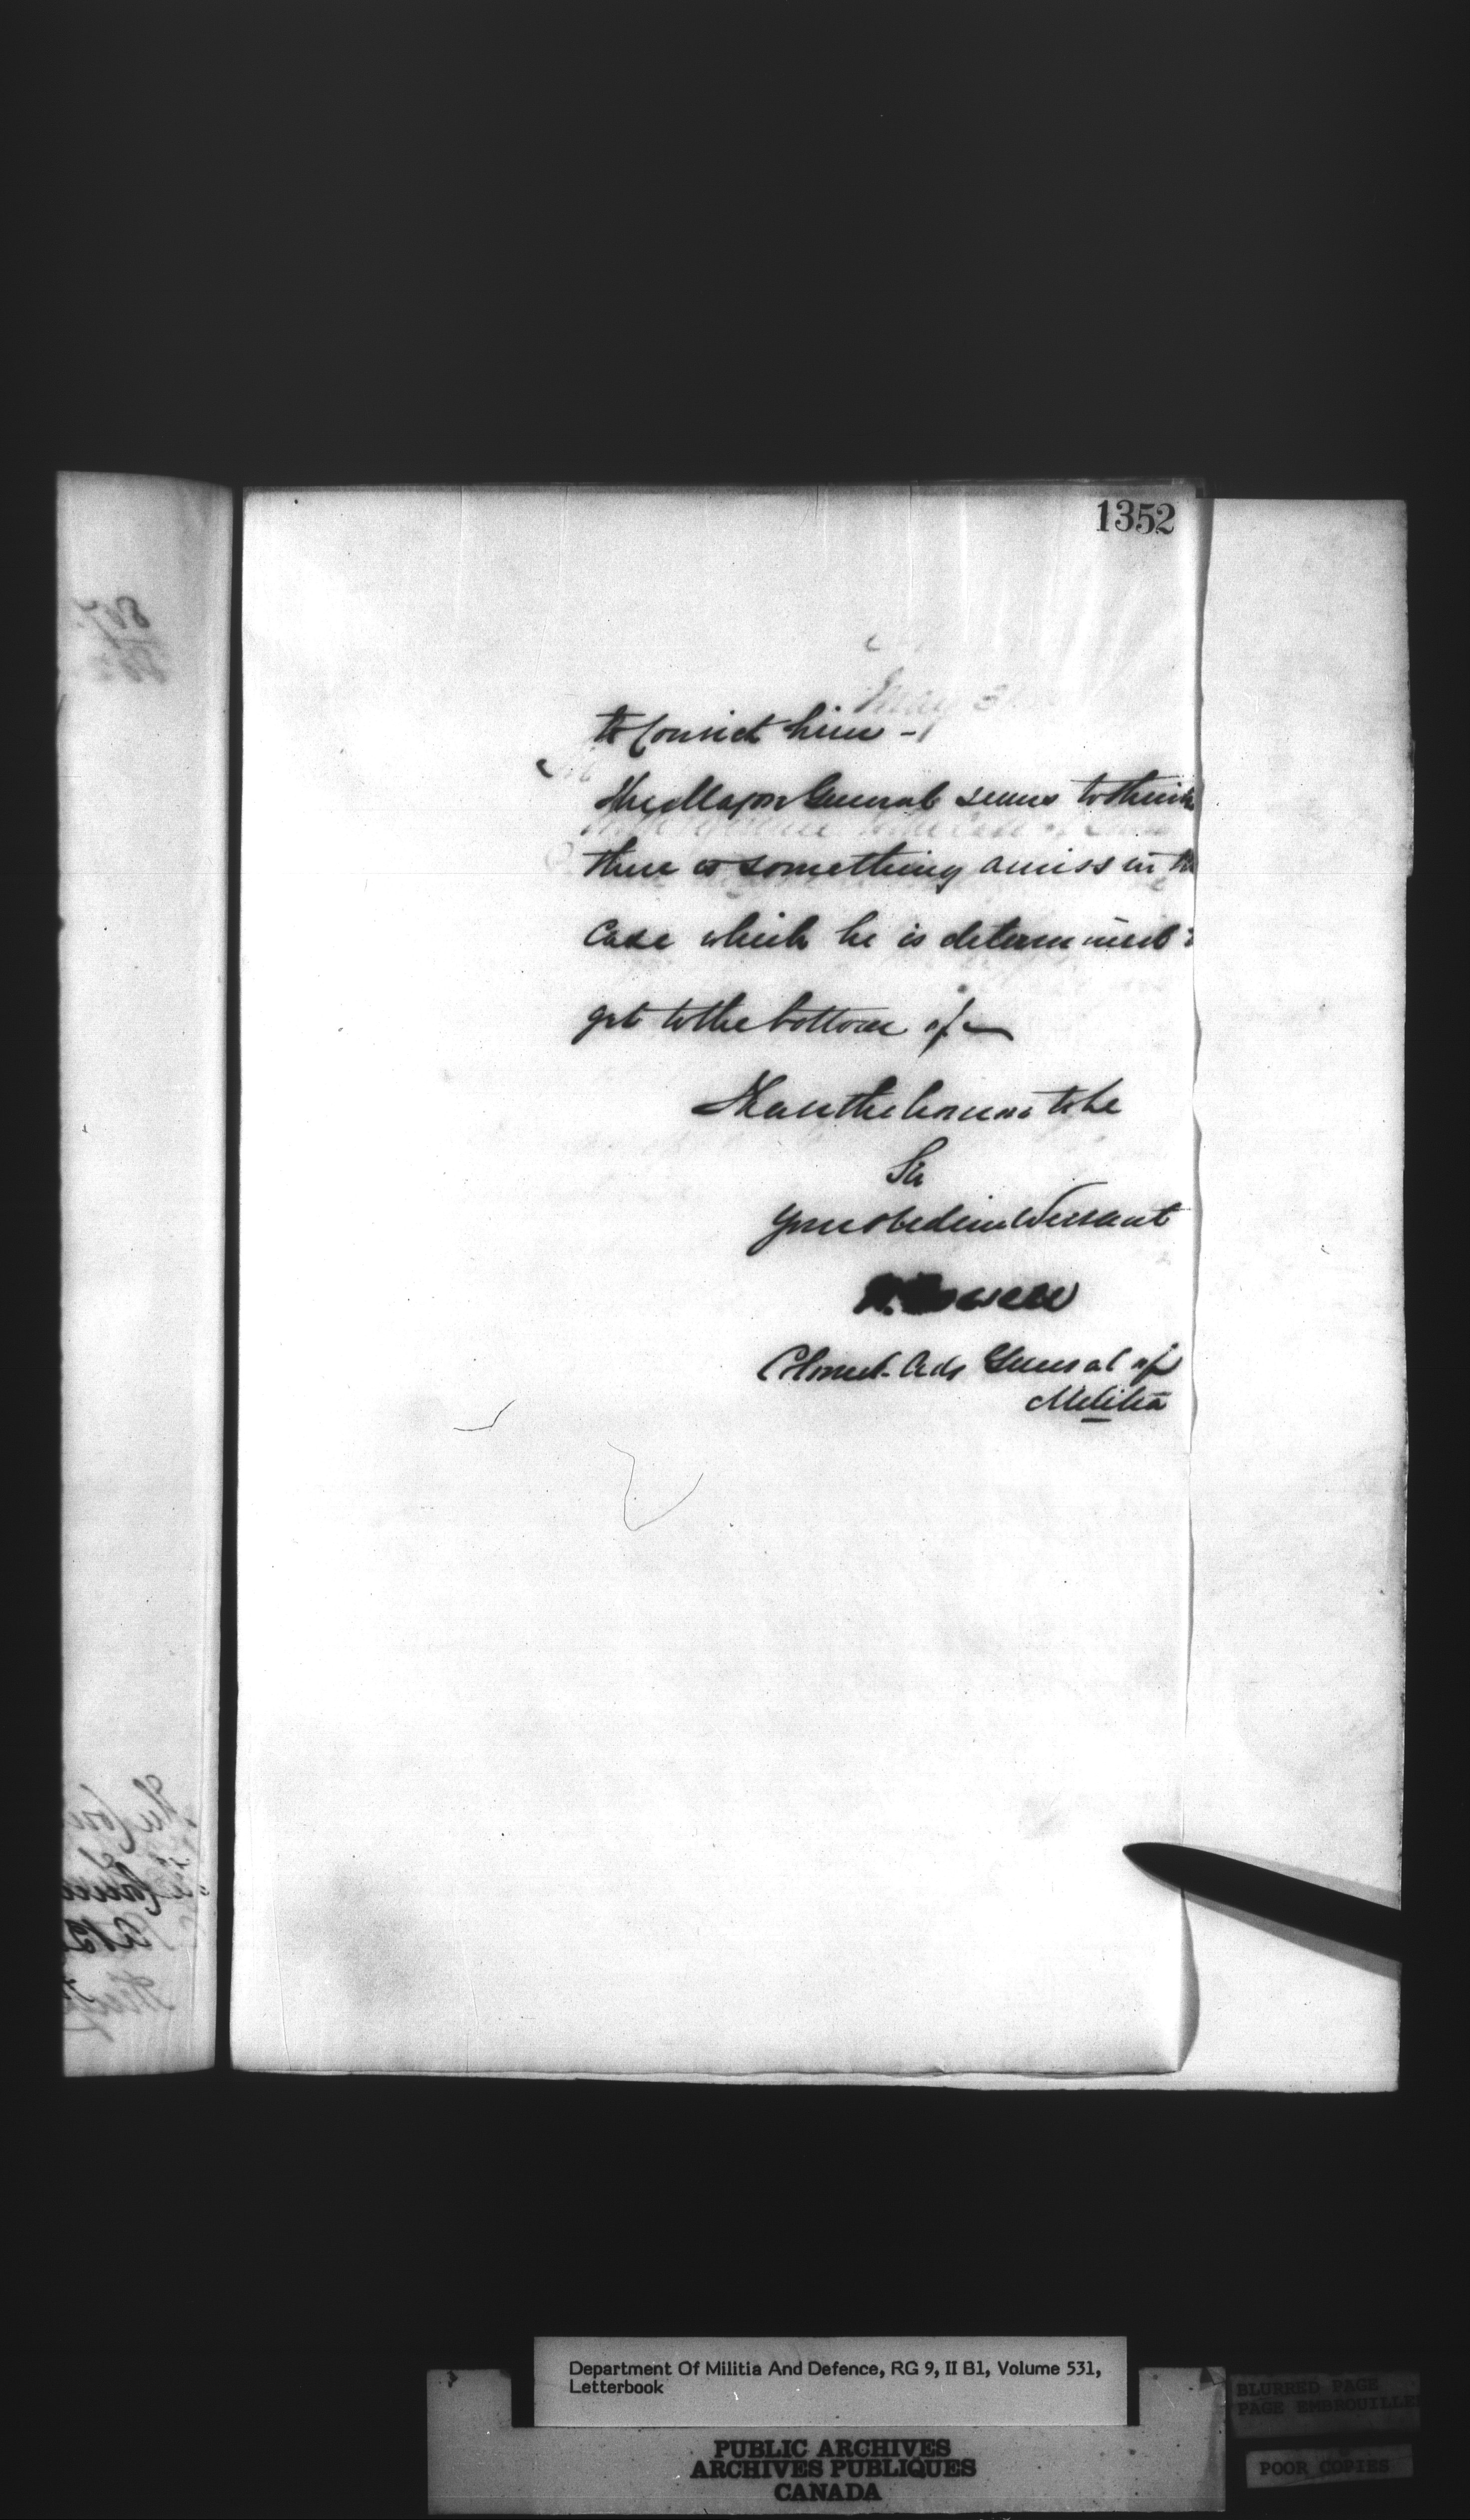 1352
to Convict him -
The Major General seems to think
there is something amiss in the
Case which he is determined
get to the bottom of -
I have the honour to be
Sir
Your obedient Servant
Colonel Adj General of
Militia
Department Of Militia And Defence, RG 9, II B1, Volume 531,
Letterbook
BLURRED PAGE
PAGE EMBROUILLEE
PUBLIC ARCHIVES
ARCHIVES PUBLIQUES
CANADA
POOR COPIES